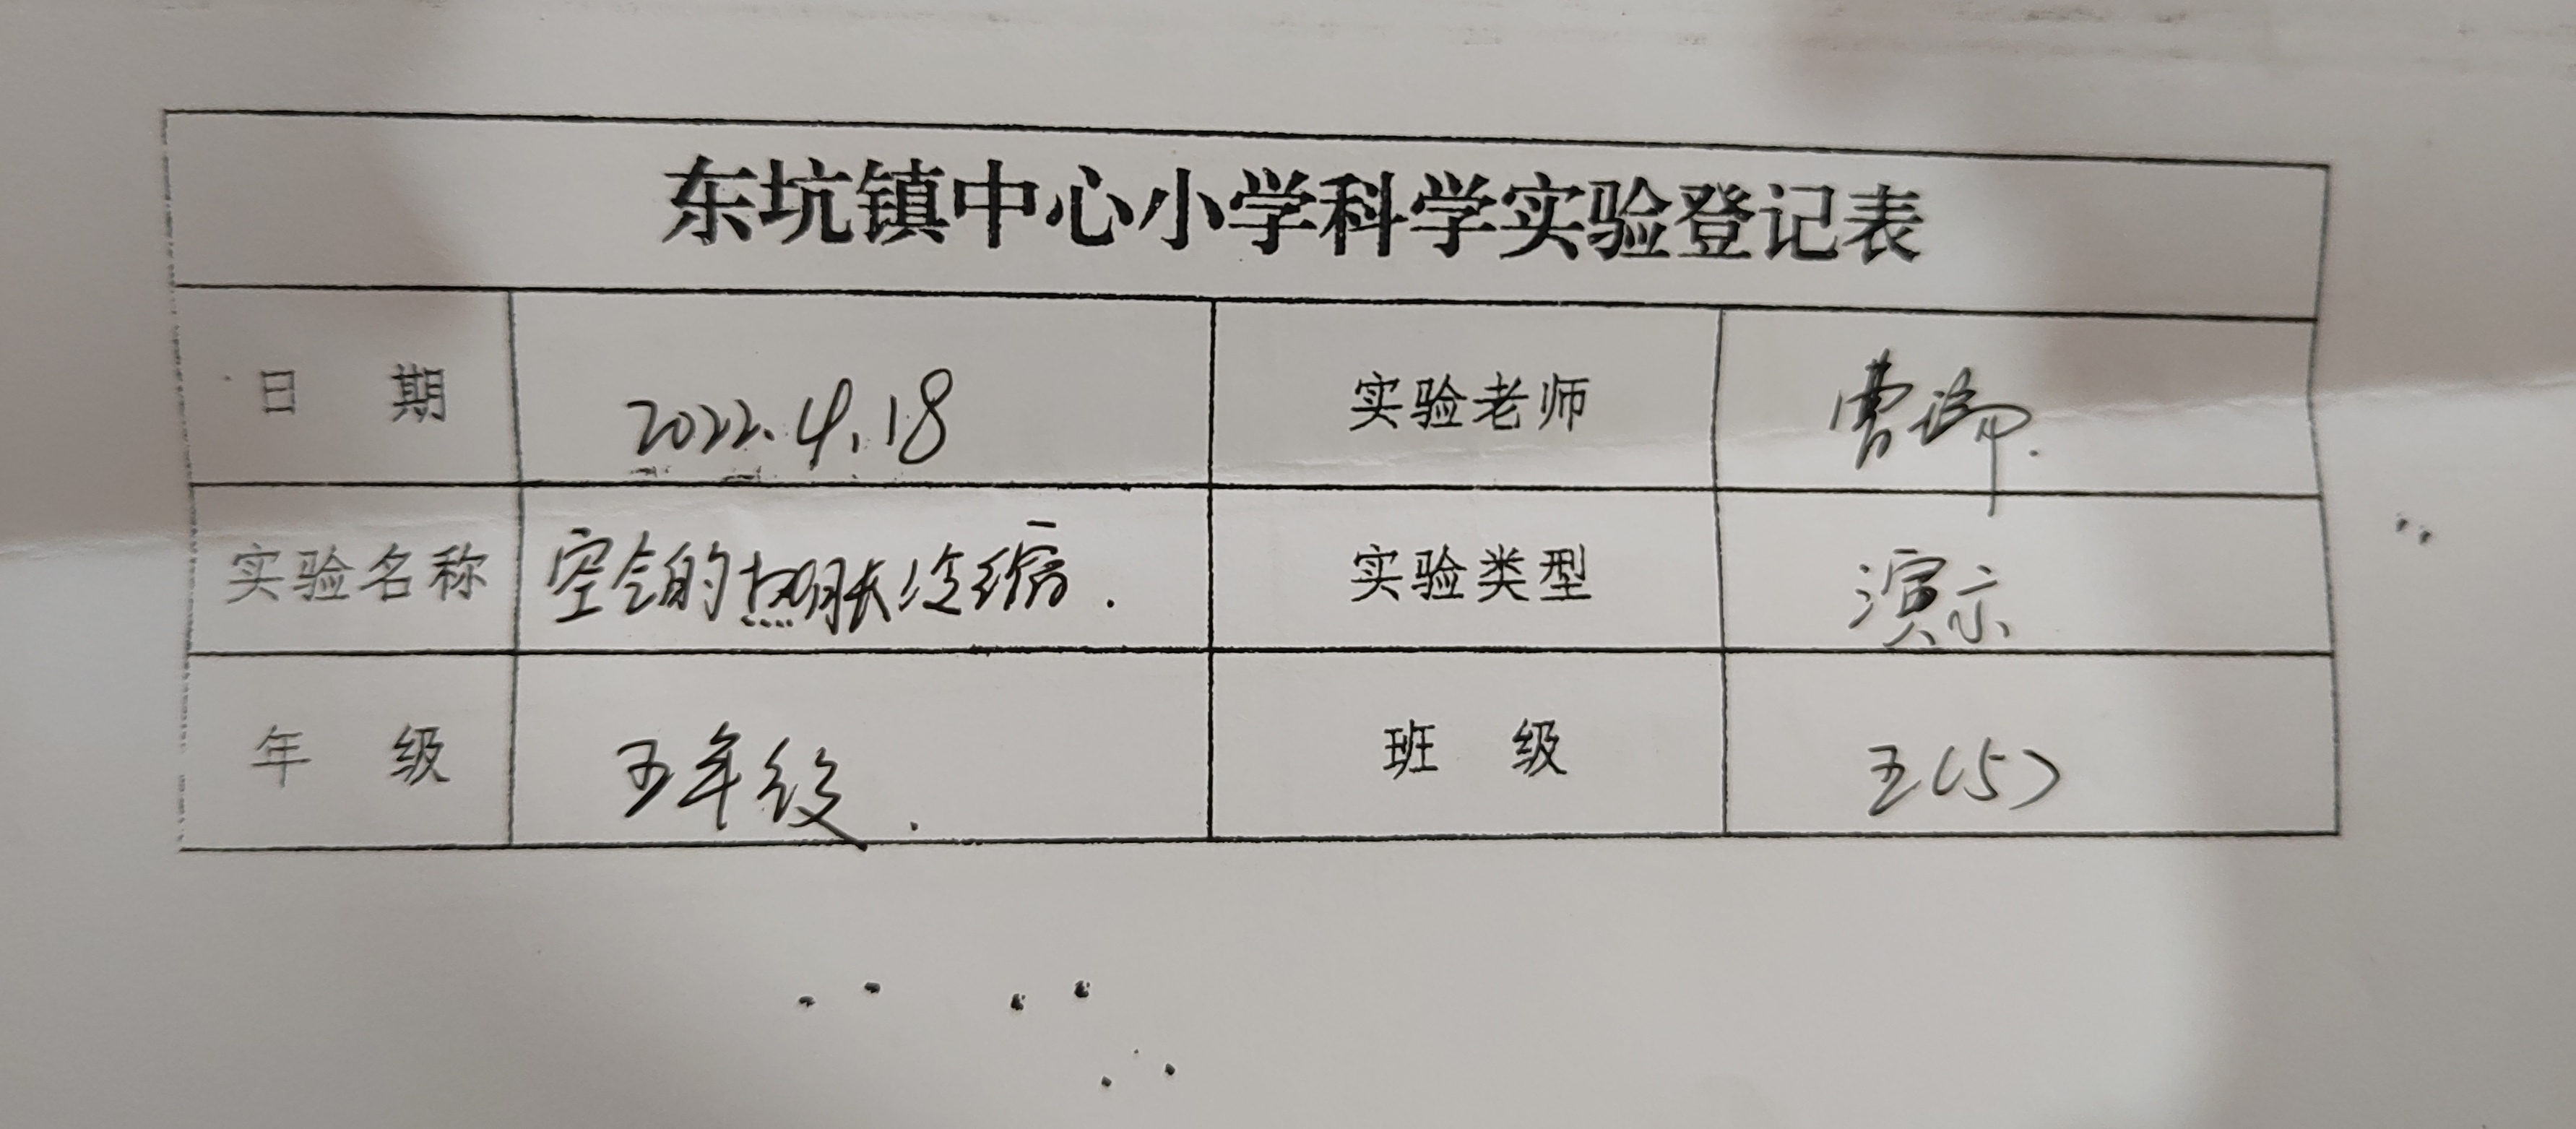 东坑镇中心小学科学实验登记表
日 期 2022.4.18 实验老师 曹
实验名称 空气的热胀冷缩. 实验类型 演示
年 级 五年级. 班 级 五(5)